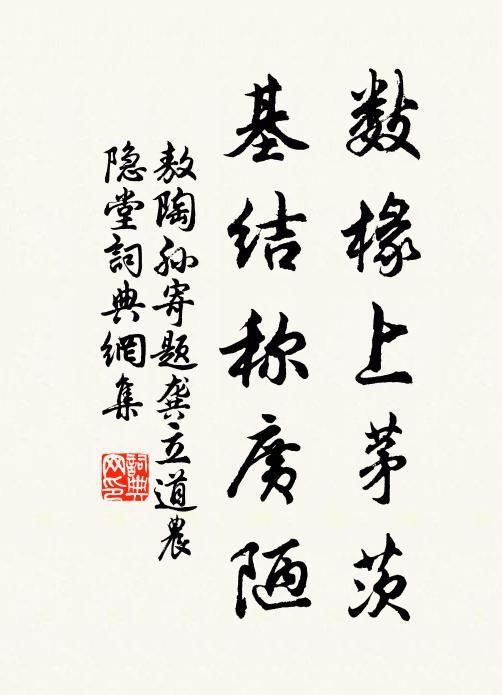 数椽上茅茨
基结称广陋
敖陶孙寄题龚立道農
隐堂詞典網集
詞典网印